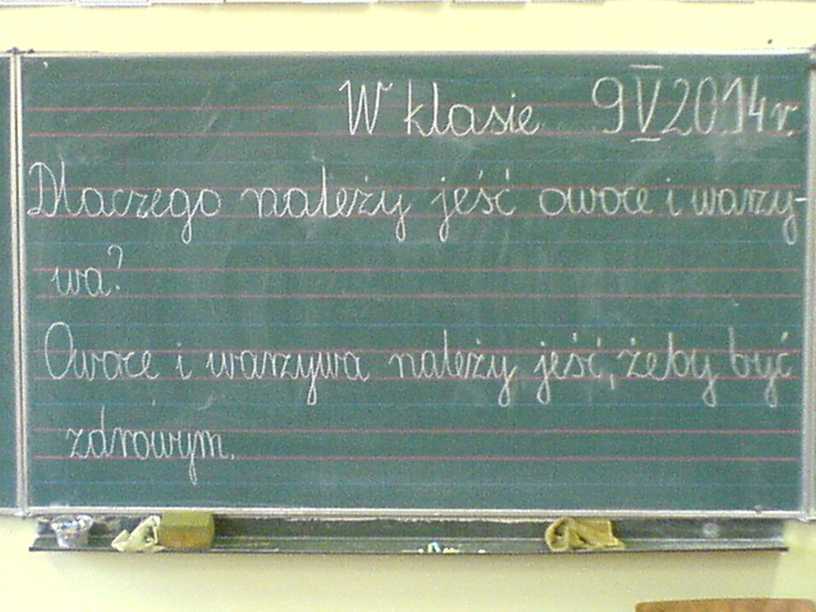 W klasie 9 V 2014 r.
Dlaczego należy jeść owoce i warzy-
wa?
Owoce i warzywa należy jeść, żeby być
zdrowym.